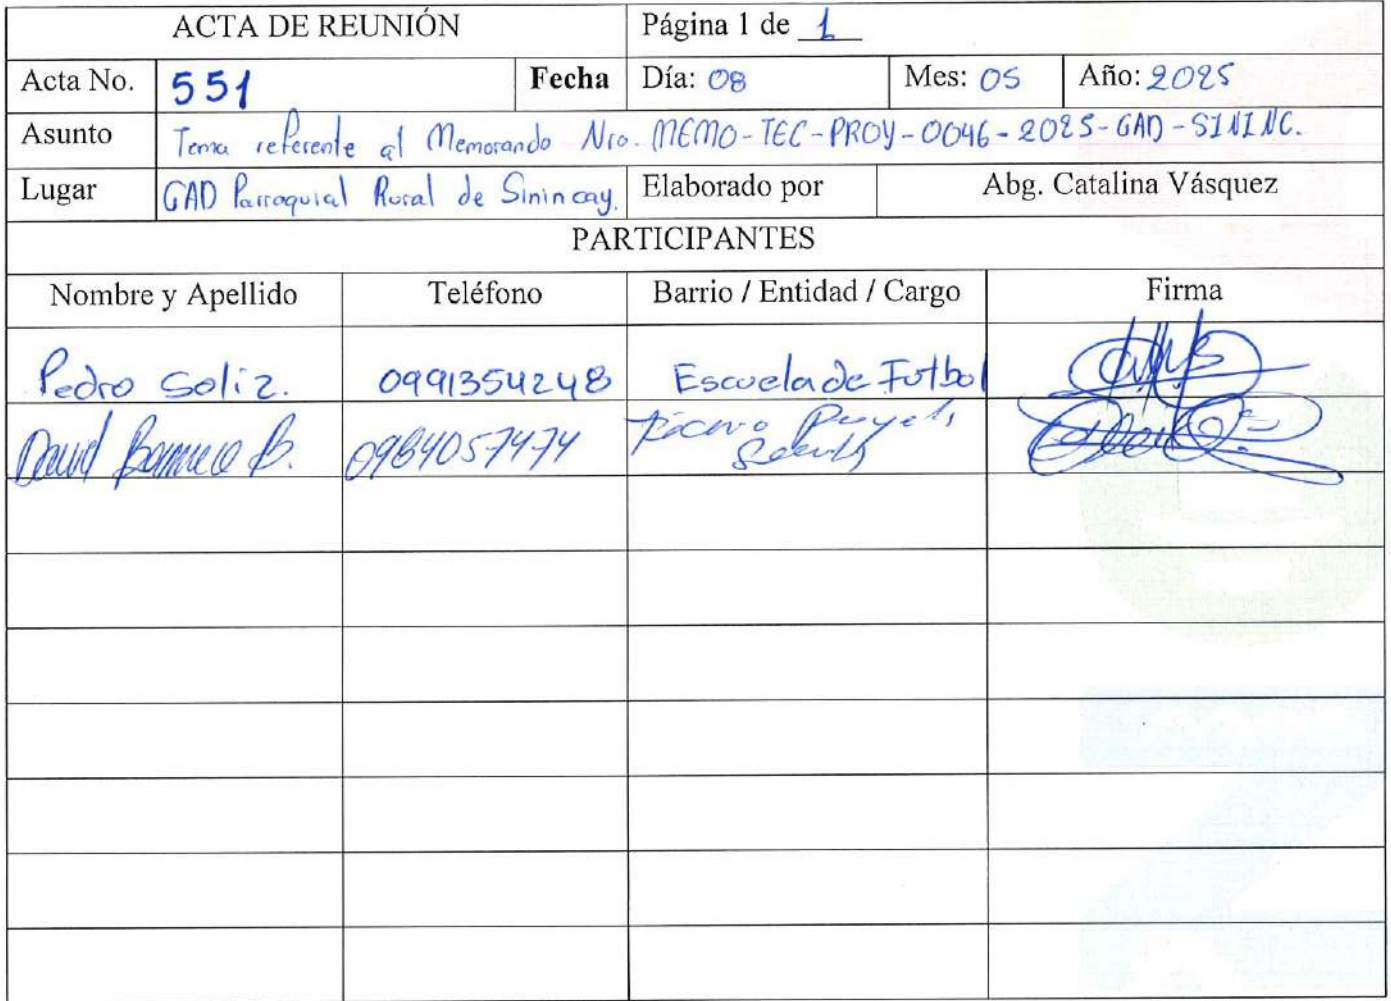 ACTA DE REUNIÓN Página 1 de 1
Acta No. 551 Fecha Día: 08 Mes: 05 Año: 2025
Asunto Tema referente al Memorando Nro. MEMO-TEC-PROY-0046-2025-GAD-SININC.
Lugar GAD Parroquial Rural de Sinincay. Elaborado por Abg. Catalina Vásquez
PARTICIPANTES
Nombre y Apellido Teléfono Barrio / Entidad / Cargo Firma
Pedro Soliz. 0991354248 Escuela de Futbol
David B. 0984057474